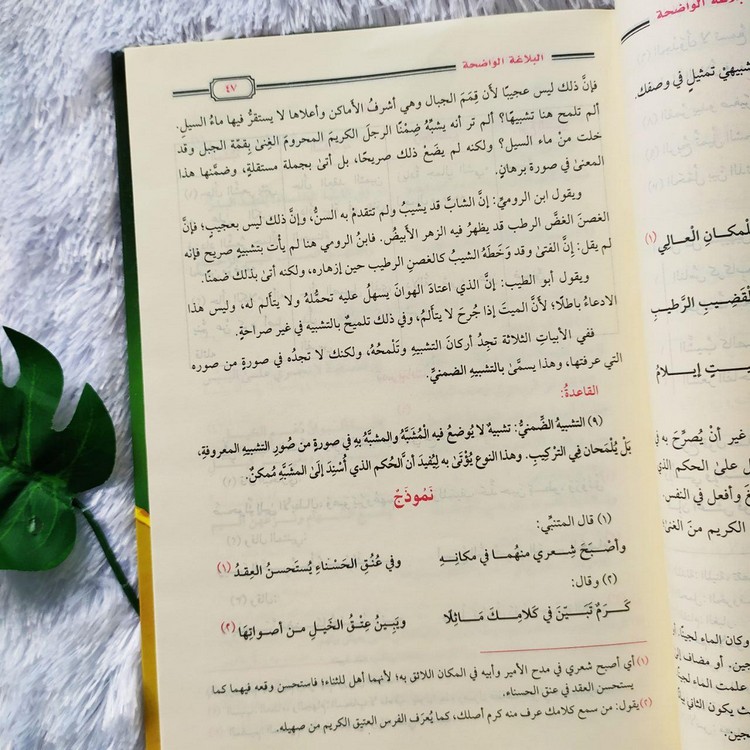 البلاغة الواضحة
٤٧
فإنَّ ذلك ليس عجيبًا لأن قِمَمَ الجبال وهي أشرفُ الأماكن وأعلاها لا يستقرُّ فيها ماءُ السيلِ.
ألم تلمح هنا تشبيهًا؟ ألم تر أنه يشبِّهُ ضِمْنًا الرجلَ الكريمَ المحرومَ الغِنىٰ بِقمّة الجبل وقد
خلت منْ ماء السيل؟ ولكنه لم يضَعْ ذلك صريحًا، بل أتىٰ بجملة مستقلةٍ، وضمَّنها هذا
المعنىٰ في صورة برهانٍ.
ويقول ابن الروميِّ: إنَّ الشابَّ قد يشيبُ ولم تتقدمْ به السنُّ، وإنَّ ذلك ليس بعجيبٍ؛ فإنَّ
الغصنَ الغضَّ الرطب قد يظهرُ فيه الزهر الأبيضُ. فابنُ الرومي هنا لم يأْت بتشبيهٍ صريح فإنه
لم يقل: إِنَّ الفتىٰ وقد وَخَطَهُ الشيبُ كالغصنِ الرطيب حين إزهاره، ولكنه أتىٰ بذلك ضمنًا.
ويقول أبو الطيب: إنَّ الذي اعتادَ الهوانَ يسهلُ عليه تحمُّلهُ ولا يتألم له، وليس هذا
الادعاءُ باطلًا؛ لأنَّ الميتَ إذا جُرحَ لا يتألمُ، وفي ذلك تلميحٌ بالتشبيه في غير صراحةٍ.
ففي الأبياتِ الثلاثة تجِدُ أركانَ التشبيهِ وتَلْمحُهُ، ولكنك لا تجدُه في صورةٍ من صوره
التي عرفتها، وهذا يسمَّىٰ بالتشبيهِ الضمنيِّ.
القاعدةُ:
(٩) التشبيهُ الضِّمنيُّ: تشبيهٌ لا يُوضعُ فيه الْمُشَبَّهُ والمشبَّهُ بهِ في صورةٍ من صُورِ التشبيهِ المعروفةِ،
بَلْ يُلْمَحان فِي التركيبِ. وهذا النوع يُؤْتَىٰ به لِيُفيدَ أن الحُكم الذي أُسْنِدَ إلَىٰ المشَبَّهِ مُمكنٌ.
نَمُوذَجٌ
(١) قال المتنبِّي:
وأصْبَحَ شِعري منهُما في مكانِهِ وفي عُنُقِ الحَسْناءِ يُستَحسنُ العِقدُ (١)
(٢) وقال:
كَرَمٌ تَبَيّنَ في كَلامِكَ مَاثِلًا ويَبِينُ عِتْقُ الخَيلِ من أصواتِهَا (٢)
(١) أي أصبح شعري في مدح الأمير وأبيه في المكان اللائق به؛ لأنهما أهل للثناء؛ فاستحسن وقعه فيهما كما
يستحسن العقد في عنق الحسناء.
(٢) يقول: من سمع كلامك عرف منه كرم أصلك، كما يُعرَف الفرس العتيق الكريم من صهيله.
البلاغة الواضحة
تمثيلٍ في وصفك.
لْمكانِ الْعالِي (١)
لْقَضِيبِ الرَّطيبِ
يتٍ إيلامُ
غير أنْ يُصرِّحَ به في
علىٰ الحكم الذي
وأفعل في النفس.
الكريم منَ الغنىٰ